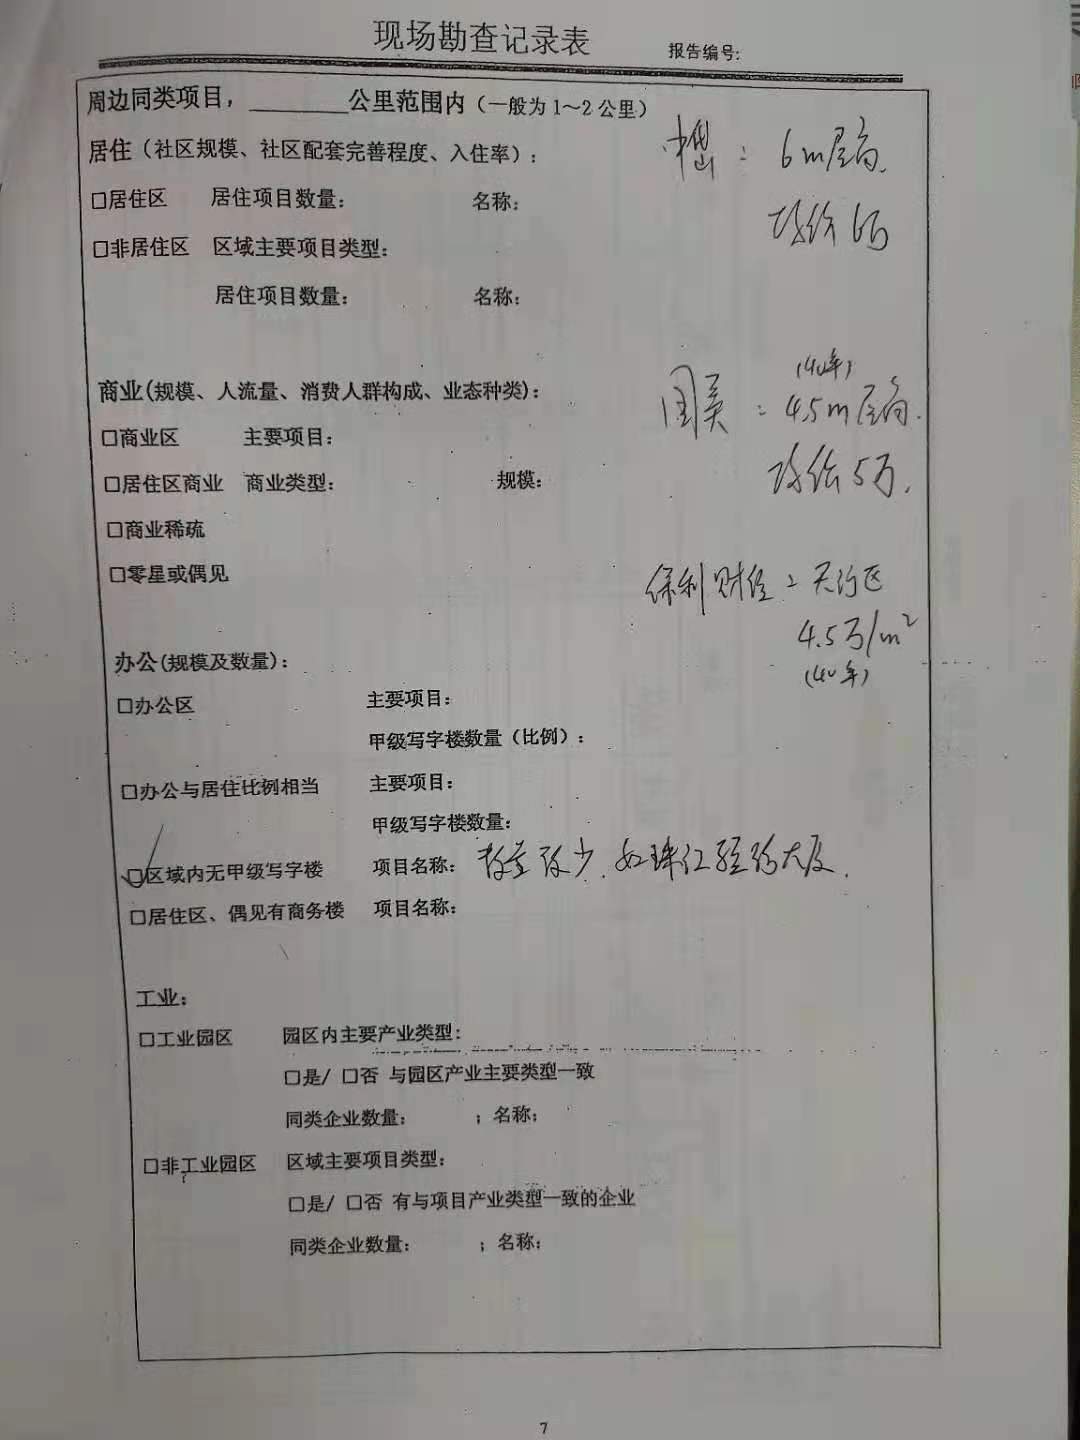 现场勘查记录表 报告编号:
周边同类项目，________公里范围内（一般为1～2公里）
居住（社区规模、社区配套完善程度、入住率）:
：6m层高.
□居住区 居住项目数量: 名称:
均价6万
□非居住区 区域主要项目类型:
居住项目数量: 名称:
(40年)
商业(规模、人流量、消费人群构成、业态种类):
国美：4.5m层高.
□商业区 主要项目:
□居住区商业 商业类型: 规模:
均价5万.
□商业稀疏
□零星或偶见
保利财经：天河区
4.5万/m²
办公(规模及数量):
(40年)
□办公区 主要项目:
甲级写字楼数量（比例）:
□办公与居住比例相当 主要项目:
甲级写字楼数量:
☑区域内无甲级写字楼 项目名称: 数量较少.如珠江 大厦.
□居住区、偶见有商务楼 项目名称:
工业:
□工业园区 园区内主要产业类型:
□是/ □否 与园区产业主要类型一致
同类企业数量: ；名称;
□非工业园区 区域主要项目类型:
□是/ □否 有与项目产业类型一致的企业
同类企业数量: ；名称;
7